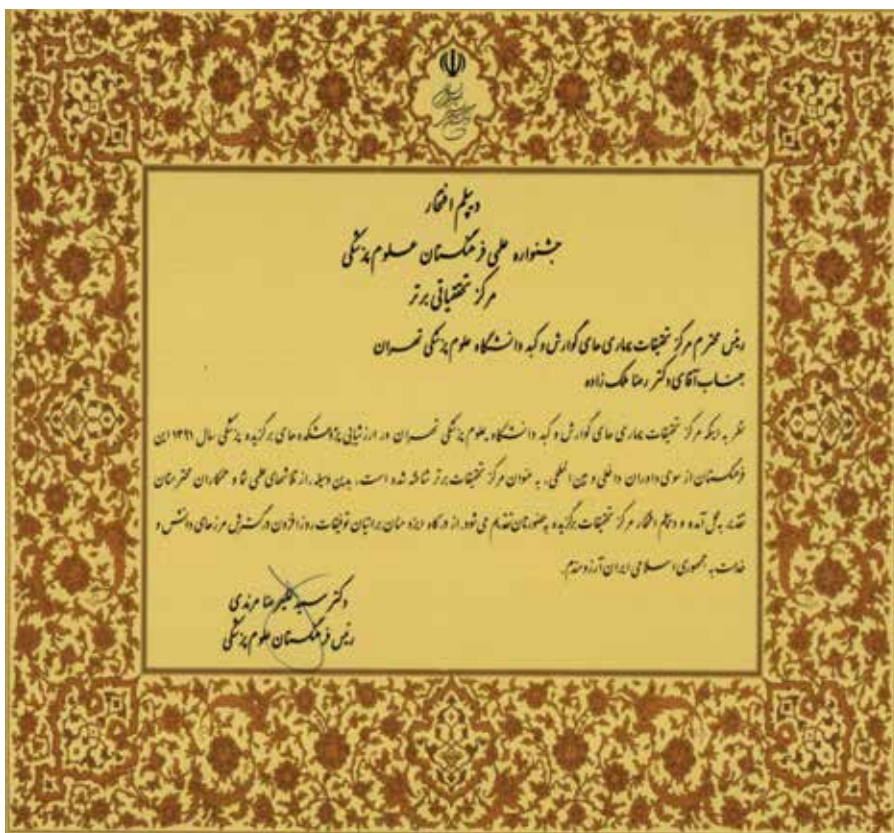 دیپلم افتخار
جشنواره علمی فرهنگستان علوم پزشکی
مرکز تحقیقاتی برتر
رئیس محترم مرکز تحقیقات بیماری های گوارش و کبد دانشگاه علوم پزشکی تهران
جناب آقای دکتر رضا ملک زاده
نظر به اینکه مرکز تحقیقات بیماری های گوارش و کبد دانشگاه علوم پزشکی تهران در ارزشیابی پژوهشکده های برگزیده پزشکی سال ۱۳۹۱ این
فرهنگستان از سوی داوران داخلی و بین المللی، به عنوان مرکز تحقیقات برتر شناخته شده است، بدین وسیله از تلاشهای علمی شما و همکاران محترمتان
تقدیر به عمل آمده و دیپلم افتخار مرکز تحقیقات برگزیده به حضورتان تقدیم می شود. از درگاه ایزد منان برایتان توفیقات روزافزون در گسترش مرزهای دانش و
خدمت به جمهوری اسلامی ایران آرزومندم.
دکتر سید علیرضا مرندی
رئیس فرهنگستان علوم پزشکی